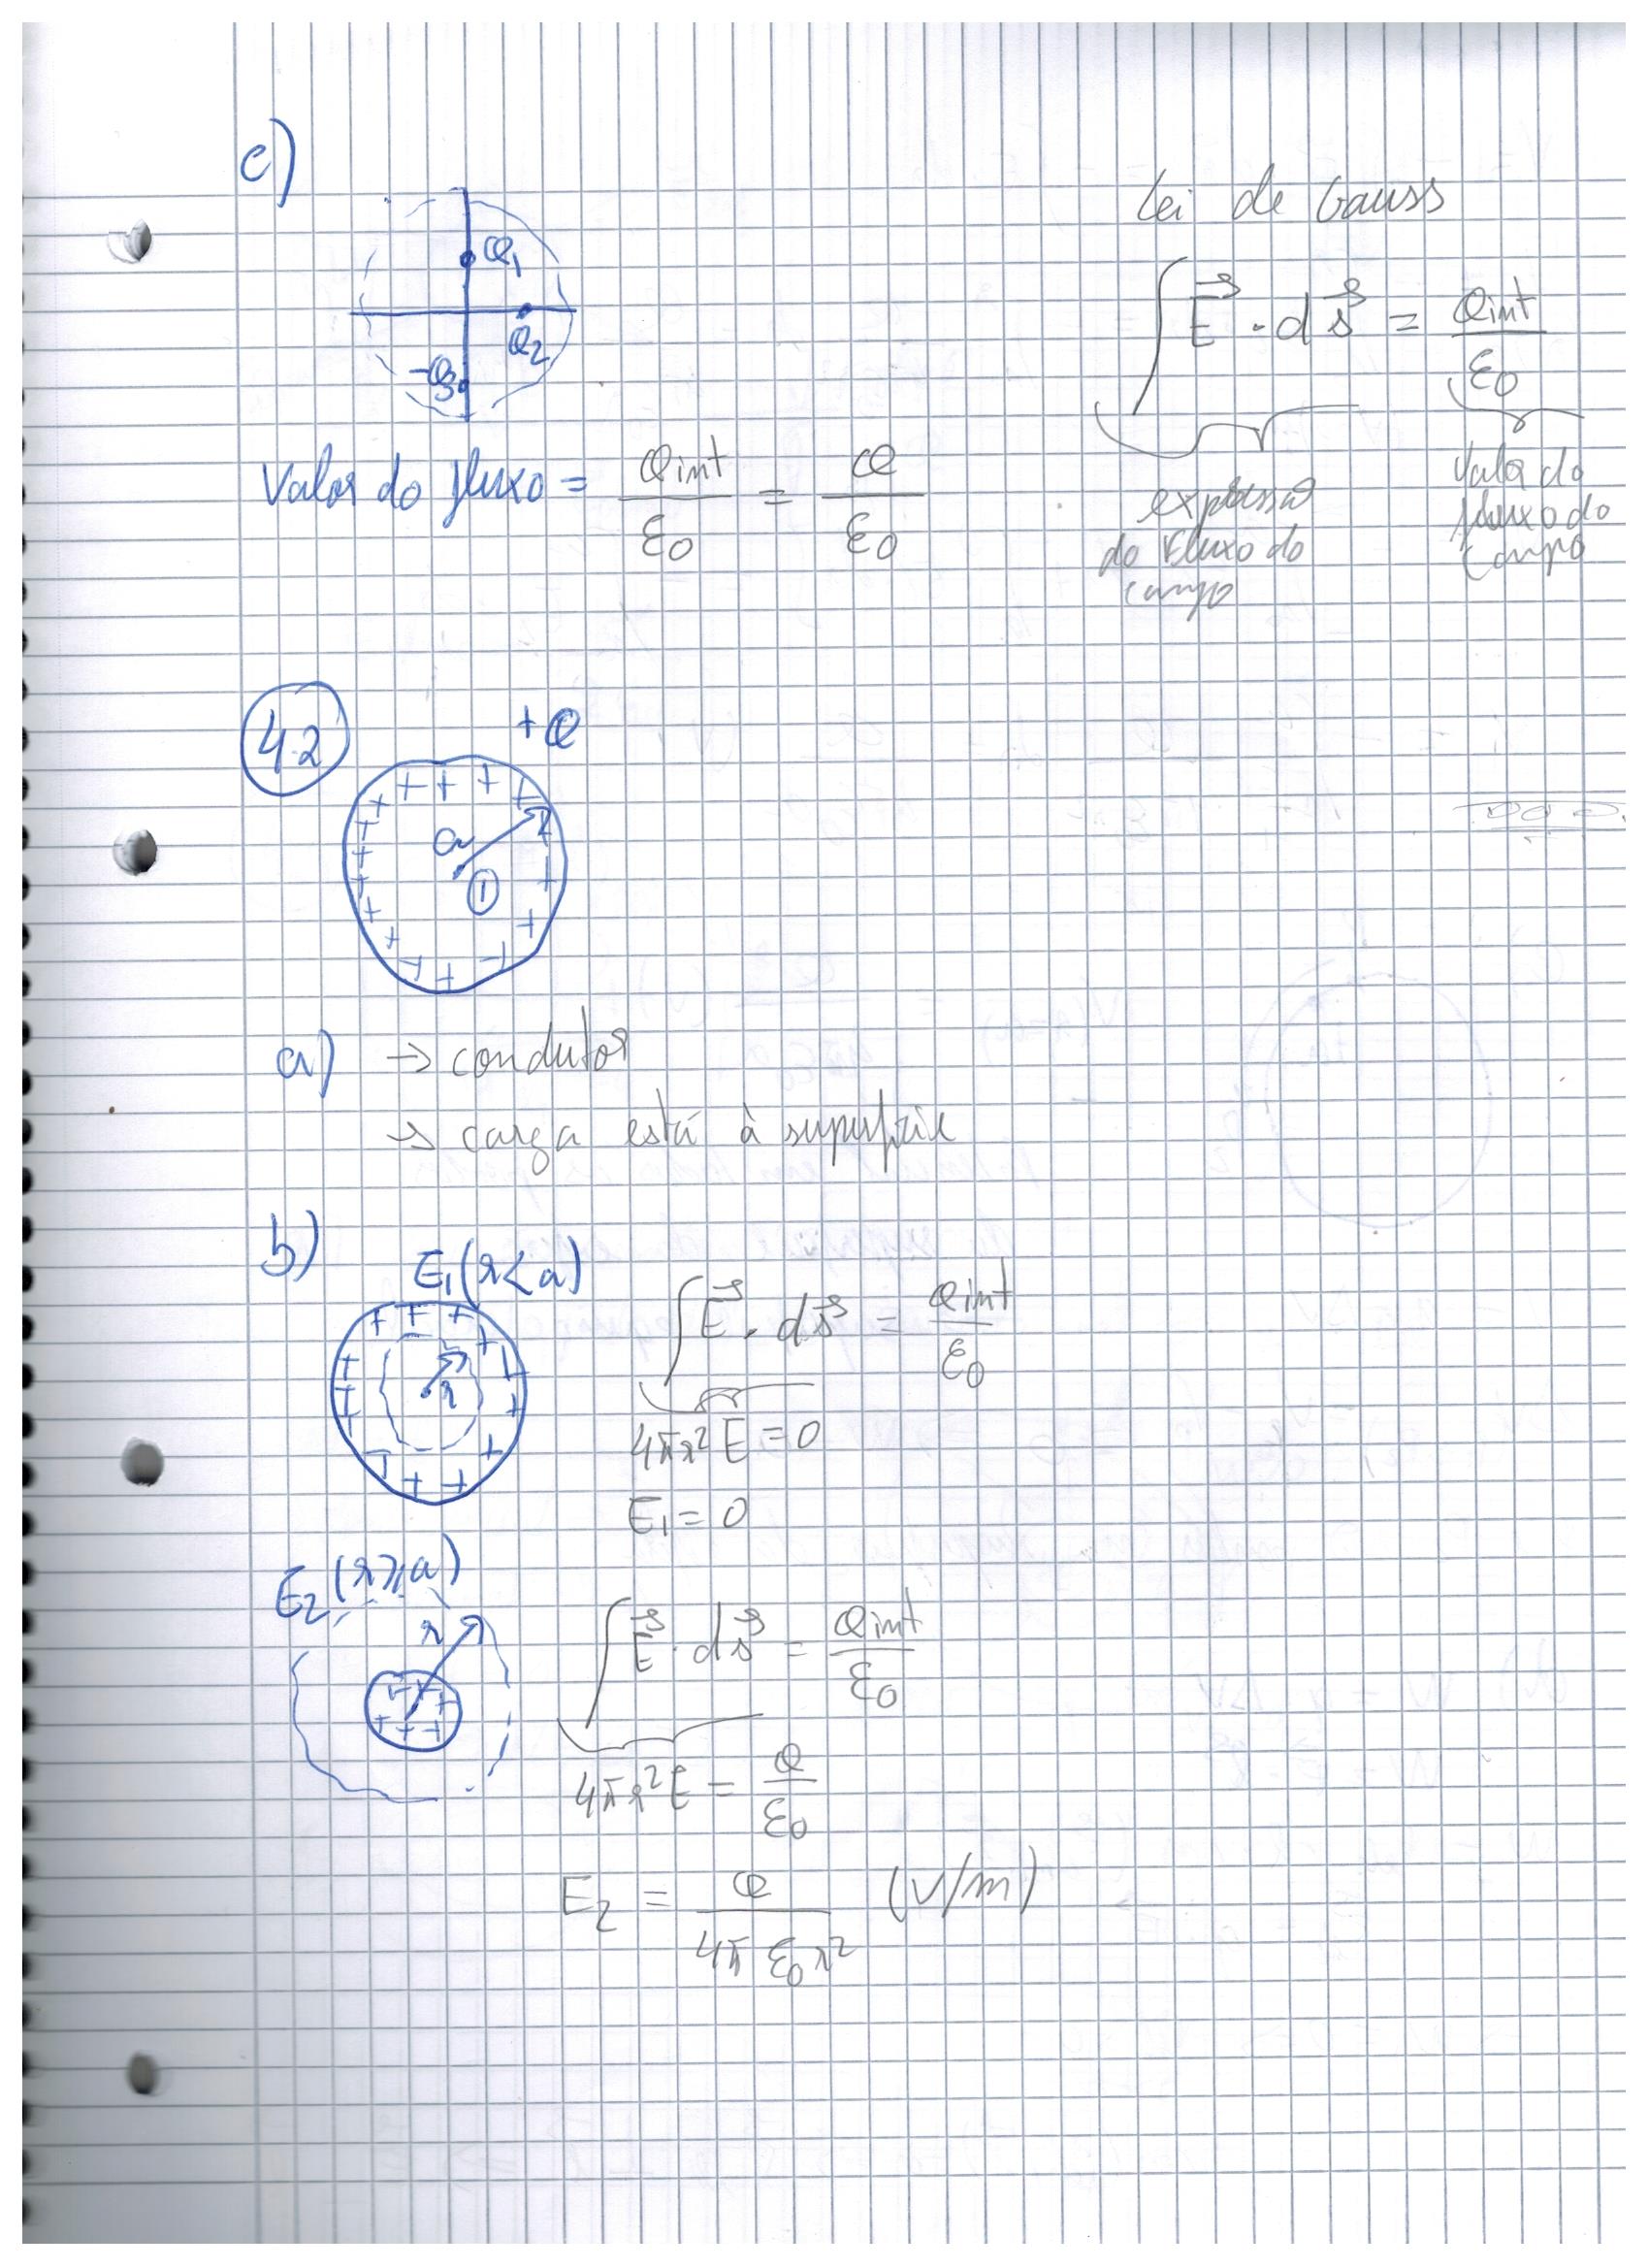 c)
Lei de Gauss
Q1
Q2
-Q3
∫ E⃗ · d s⃗ = Qint / ε0
Valor do fluxo = Qint / ε0 = Q / ε0
expressão do Fluxo do campo
Valor do fluxo do campo
4.2
+Q
+ + + + + + + + + + + + + + +
a
1
a) → condutor
→ carga está à superfície
b)
E1 (r < a)
r
∫ E⃗ · d s⃗ = Qint / ε0
4πr² E = 0
E1 = 0
E2 (r ≥ a)
r
∫ E⃗ · d s⃗ = Qint / ε0
4πr² E = Q / ε0
E2 = Q / 4π ε0 r² (V/m)